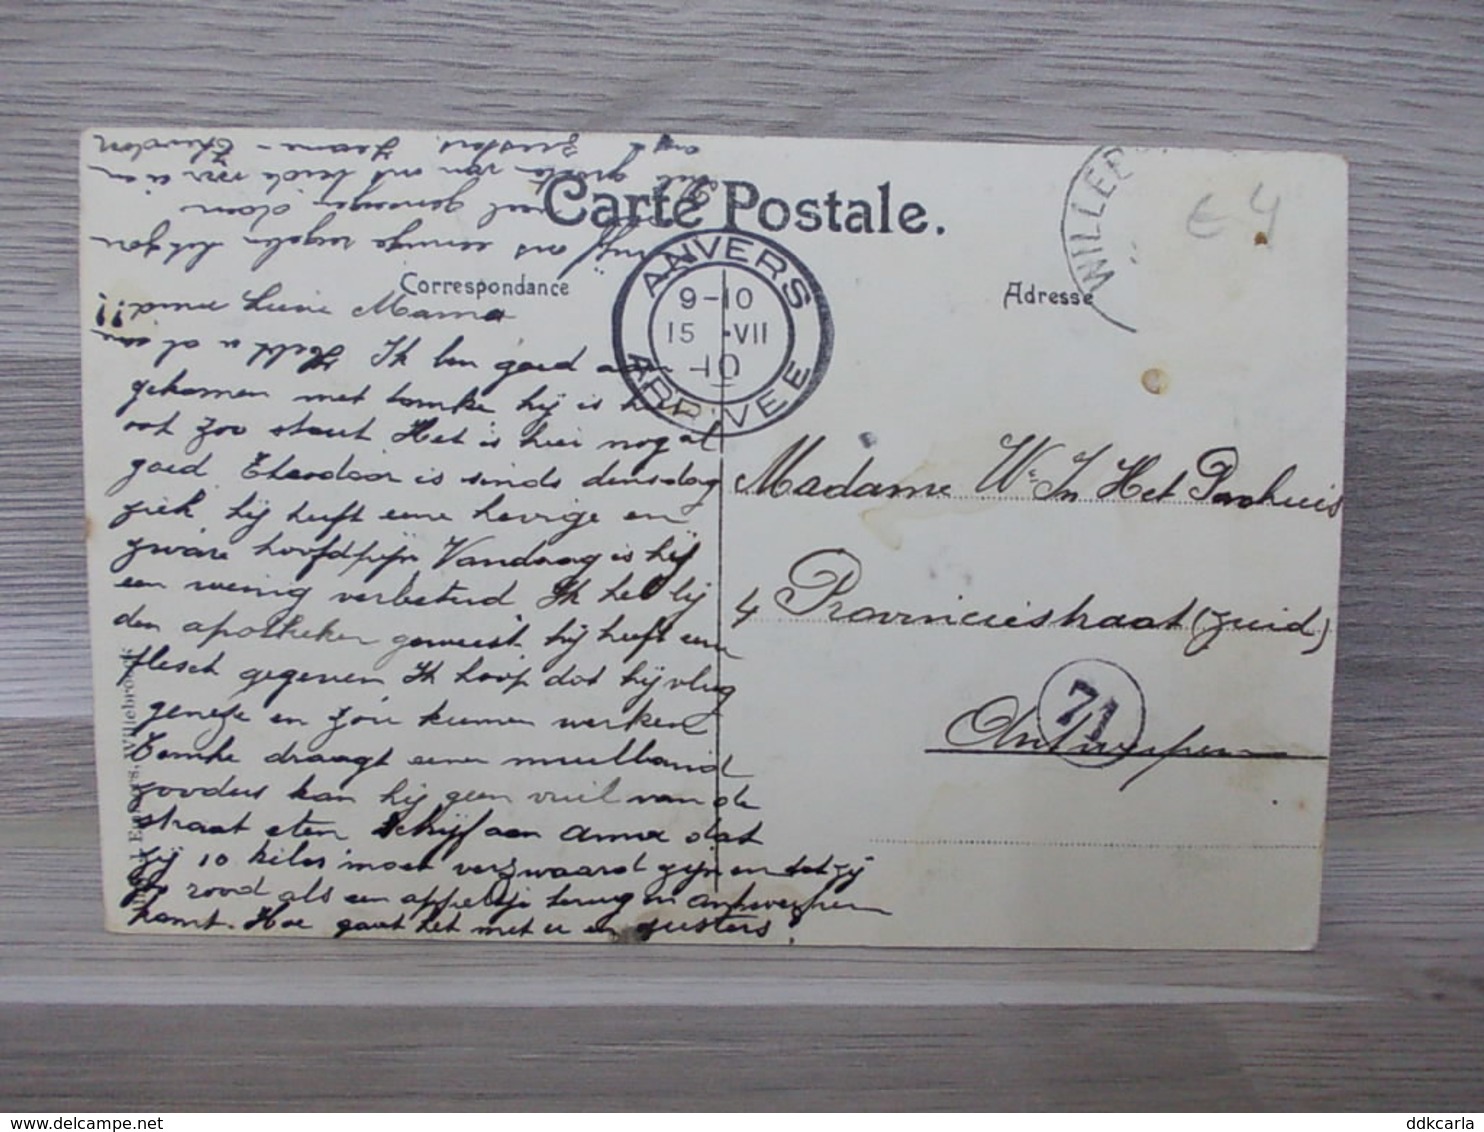 Carte Postale.
Correspondance
Adresse
ANVERS
9-10
15 VII
10
ARRIVEE
WILLEB
€ 4
Lieve Mama
Ik ben goed aan
gekomen met tomke hij is hier
ook zoo stout Het is hier nog al
goed. Theodoor is sinds dinsdag
ziek, hij heeft eene hevige en
zware hoofdpijn Vandaag is hij
een weinig verbeterd Ik heb bij
den apotheker geweest hij heeft een
flesch gegeven Ik hoop dat hij vlug
geneze en zou kunnen werken
Tomke draagt eenen muilband
zooders kan hij geen vuil van de
straat eten Schrijf aan Anna dat
zij 10 kilos moet verzwaard zijn en dat zij
zo rood als een appeltje terug in antwerpen
komt. Hoe gaat het met u en zusters?
Schrijf ons eenige regelen
veel genoegen doen
groeten van ons beide voor u en
zusters Jeanne - Theodoor
Madame We In Het Panhuis
4 Provinciestraat (Zuid)
71
Antwerpen
Willebroeck
ddkcarla